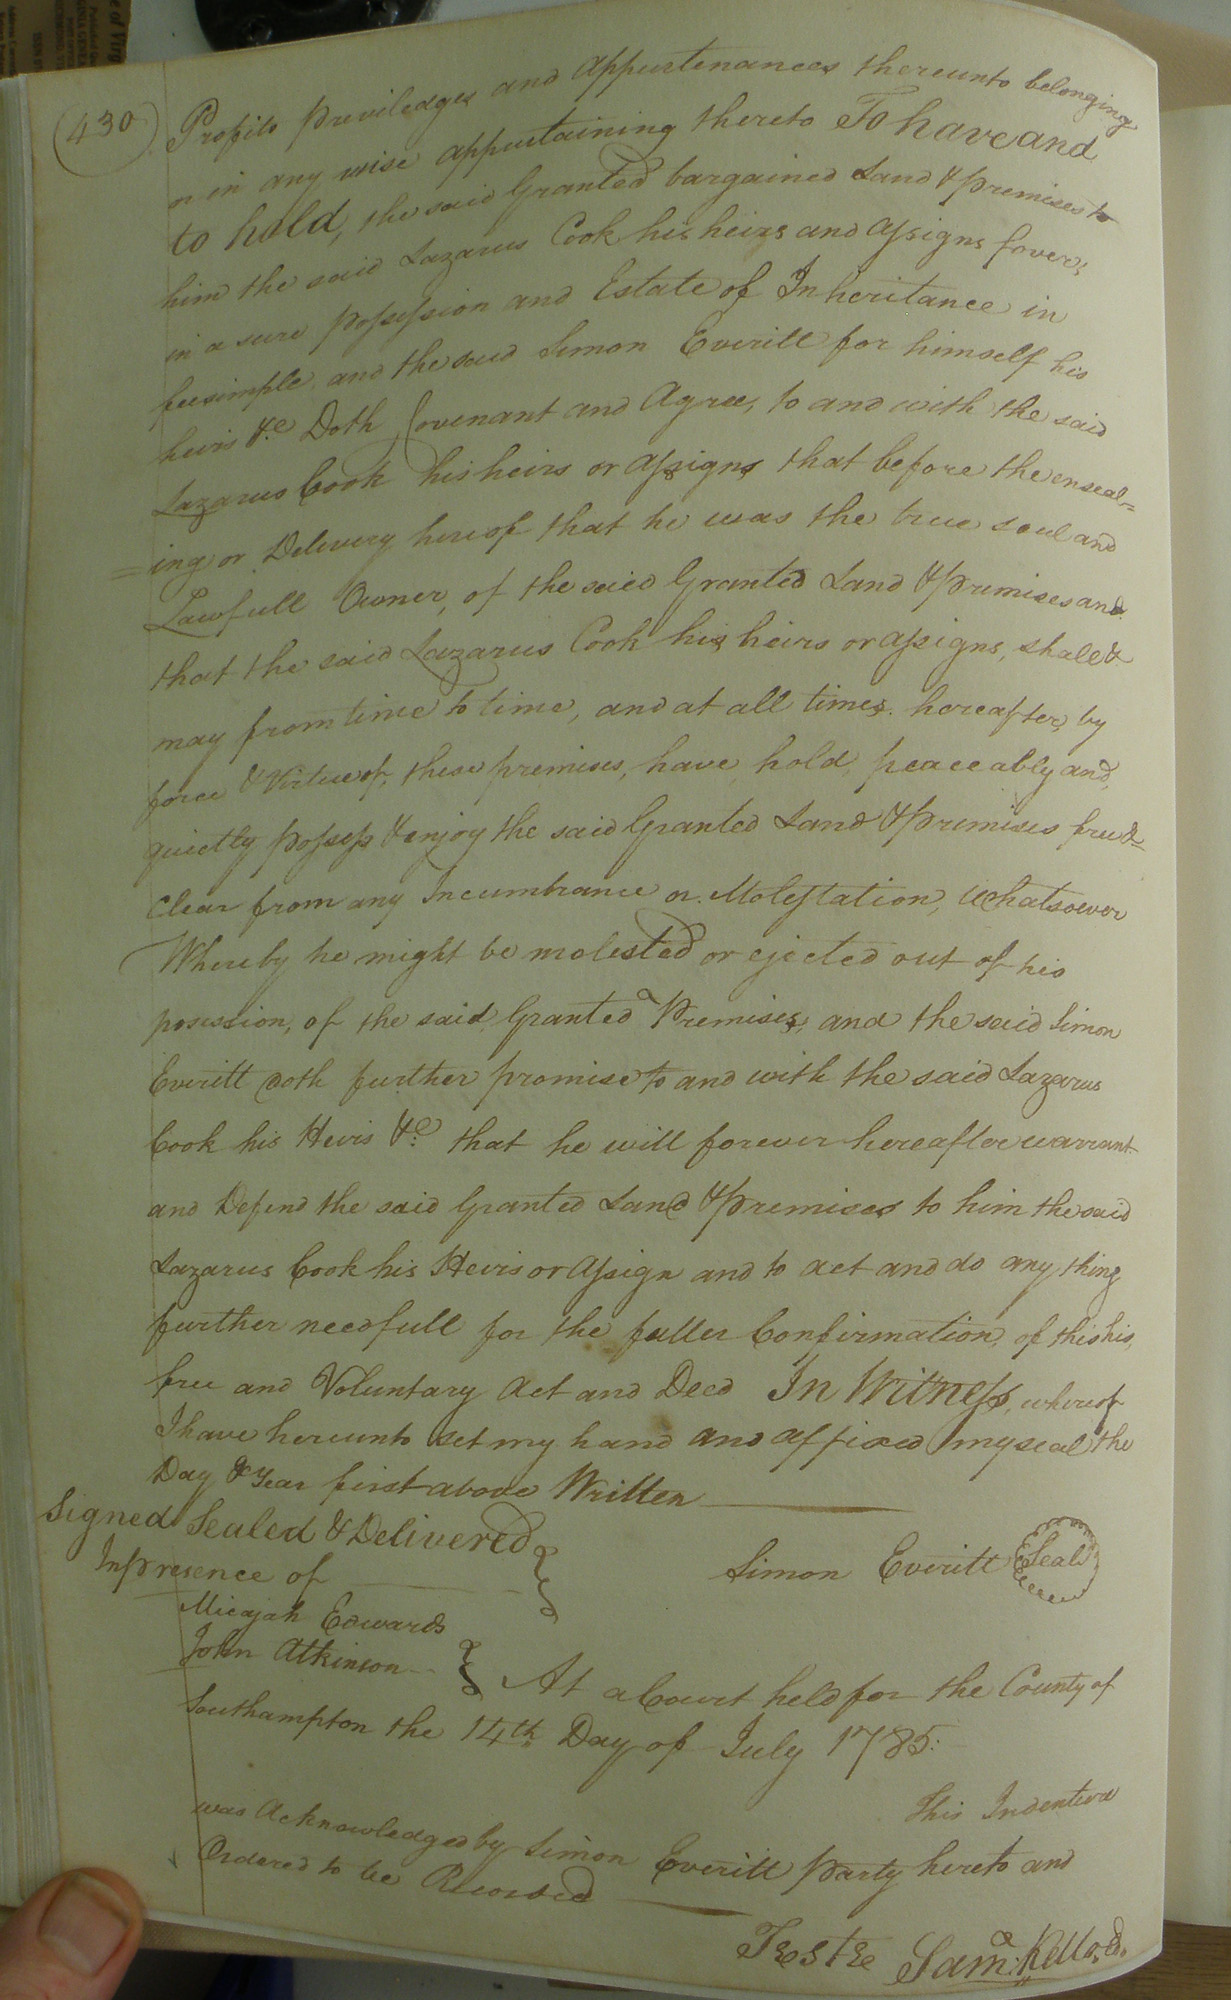 430
Profits Priviledges and Appurtenances thereunto belonging
or in any wise appurtaining thereto To have and
to hold, the said Granted bargained Land & premises to
him the said Lazarus Cook his heirs and Assigns forever,
in a sure possession and Estate of Inheritance in
feesimple and the said Simon Everitt for himself his
heirs &c Doth Covenant and Agree, to and with the said
Lazarus Cook his heirs or Assigns that before the enseal=
=ing or Delivery hereof that he was the true soul and
Lawfull Owner, of the said Granted Land & premises and
that the said Lazarus Cook his heirs or assigns, shall &
may from time to time, and at all times hereafter, by
force & Virtue of, these premises, have hold, peaceably and,
quietly possess & enjoy the said Granted Land & premises free &
Clear from any Incumbrance or Molestation, Whatsoever
Whereby he might be molested or ejected out of his
posession, of the said, Granted Premises, and the said Simon
Everitt doth further promise to and with the said Lazarus
Cook his Heirs &c that he will forever hereafter warrant
and Defend the said Granted Land & premises to him the said
Lazarus Cook his Heirs or Assign and to act and do any thing
further needfull for the fuller Confirmation, of this his,
free and Voluntary Act and Deed In Witness, whereof
I have hereunto set my hand and affixed my seal the
Day & Year first above Written
Signed Sealed & Delivered
In presence of
Simon Everitt Seal
Micajah Edwards
John Atkinson
At a Court held for the County of
Southampton the 14th Day of July 1785:
This Indenture
was Acknowledged by Simon Everitt party hereto and
Ordered to be Recorded
Teste Saml: Kello, Cl.